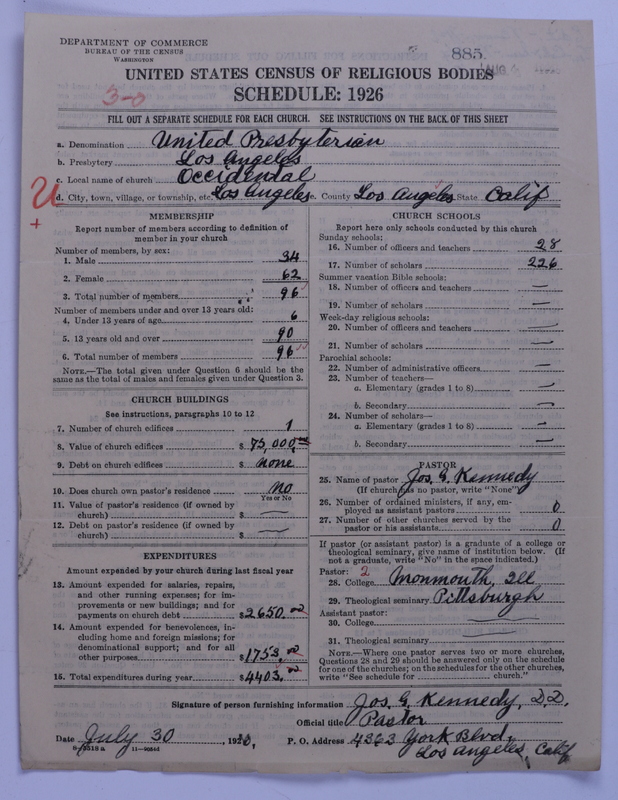 DEPARTMENT OF COMMERCE
BUREAU OF THE CENSUS
WASHINGTON
885.
AUG
UNITED STATES CENSUS OF RELIGIOUS BODIES
SCHEDULE: 1926
3-0
FILL OUT A SEPARATE SCHEDULE FOR EACH CHURCH. SEE INSTRUCTIONS ON THE BACK OF THIS SHEET
a. Denomination United Presbyterian
b. Presbytery Los Angeles
c. Local name of church Occidental
U
d. City, town, village, or township, etc. Los Angeles e. County Los Angeles State Calif
+
MEMBERSHIP
Report number of members according to definition of
member in your church
Number of members, by sex:
1. Male 34
2. Female 62
3. Total number of members 96
Number of members under and over 13 years old:
4. Under 13 years of age 6
5. 13 years old and over 90
6. Total number of members 96
NOTE.—The total given under Question 6 should be the
same as the total of males and females given under Question 3.
CHURCH BUILDINGS
See instructions, paragraphs 10 to 12
7. Number of church edifices 1
8. Value of church edifices $ 75,000.00
9. Debt on church edifices $ None
10. Does church own pastor's residence No
Yes or No
11. Value of pastor's residence (if owned by
church) $ —
12. Debt on pastor's residence (if owned by
church) $ —
EXPENDITURES
Amount expended by your church during last fiscal year
13. Amount expended for salaries, repairs,
and other running expenses; for im-
provements or new buildings; and for
payments on church debt $ 2650.00
14. Amount expended for benevolences, in-
cluding home and foreign missions; for
denominational support; and for all
other purposes $ 1753.00
15. Total expenditures during year $ 4403.00
CHURCH SCHOOLS
Report here only schools conducted by this church
Sunday schools:
16. Number of officers and teachers 28
17. Number of scholars 226
Summer vacation Bible schools:
18. Number of officers and teachers —
19. Number of scholars —
Week-day religious schools:
20. Number of officers and teachers —
21. Number of scholars —
Parochial schools:
22. Number of administrative officers —
23. Number of teachers—
a. Elementary (grades 1 to 8) —
b. Secondary —
24. Number of scholars—
a. Elementary (grades 1 to 8) —
b. Secondary —
PASTOR
25. Name of pastor Jos. G. Kennedy
(If church has no pastor, write "None")
26. Number of ordained ministers, if any, em-
ployed as assistant pastors 0
27. Number of other churches served by the
pastor or his assistants 0
If pastor (or assistant pastor) is a graduate of a college or
theological seminary, give name of institution below. (If
not a graduate, write "No" in the space indicated.)
Pastor: 2
28. College Monmouth, Ill
29. Theological seminary Pittsburgh
Assistant pastor:
30. College —
31. Theological seminary —
NOTE.—Where one pastor serves two or more churches,
Questions 28 and 29 should be answered only on the schedule
for one of the churches; on the schedules for the other churches,
write "See schedule for church."
Signature of person furnishing information Jos. G. Kennedy, D.D.
Official title Pastor
Date July 30, 192 P. O. Address 4363 York Blvd.
Los Angeles, Calif
8-5518 a 11-9034d